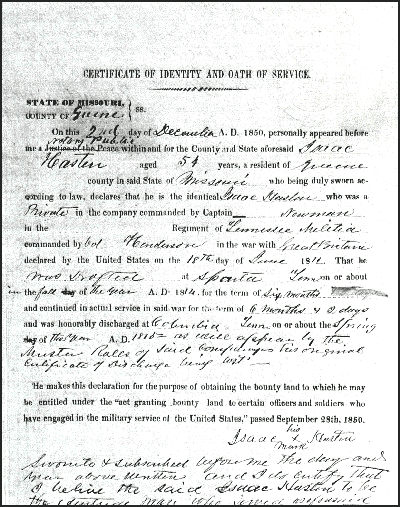 CERTIFICATE OF IDENTITY AND OATH OF SERVICE.
STATE OF MISSOURI,
COUNTY OF Greene } ss.
On this 2nd day of December A. D. 1850, personally appeared before
Notary Public
me a Justice of the Peace within and for the County and State aforesaid Isaac
Hasten aged 54 years, a resident of Greene
county in said State of Missouri who being duly sworn ac-
cording to law, declares that he is the identical Isaac Hasten who was a
Private in the company commanded by Captain Newman
in the Regiment of Tennessee Militia
commanded by Col Henderson in the war with Great Britain
declared by the United States on the 18th day of June 1812. That he
was Drafted at Sparta Tenn on or about
in the fall day of the year A. D. 1814, for the term of Six months
and continued in actual service in said war for the term of 6 months & 2 days
and was honorably discharged at Columbia Tenn on or about the Spring
day of the year A. D. 1815 as will appear by the
Muster Rolls of said Company his original
Certificate of Discharge being
He makes this declaration for the purpose of obtaining the bounty land to which he may
be entitled under the "act granting bounty land to certain officers and soldiers who
have engaged in the military service of the United States," passed September 28th, 1850.
his
Isaac x Hasten
mark
Sworn to & subscribed before me the day and
year above written and I do certify that
I believe the said Isaac Hasten to be
the identical man who served aforesaid